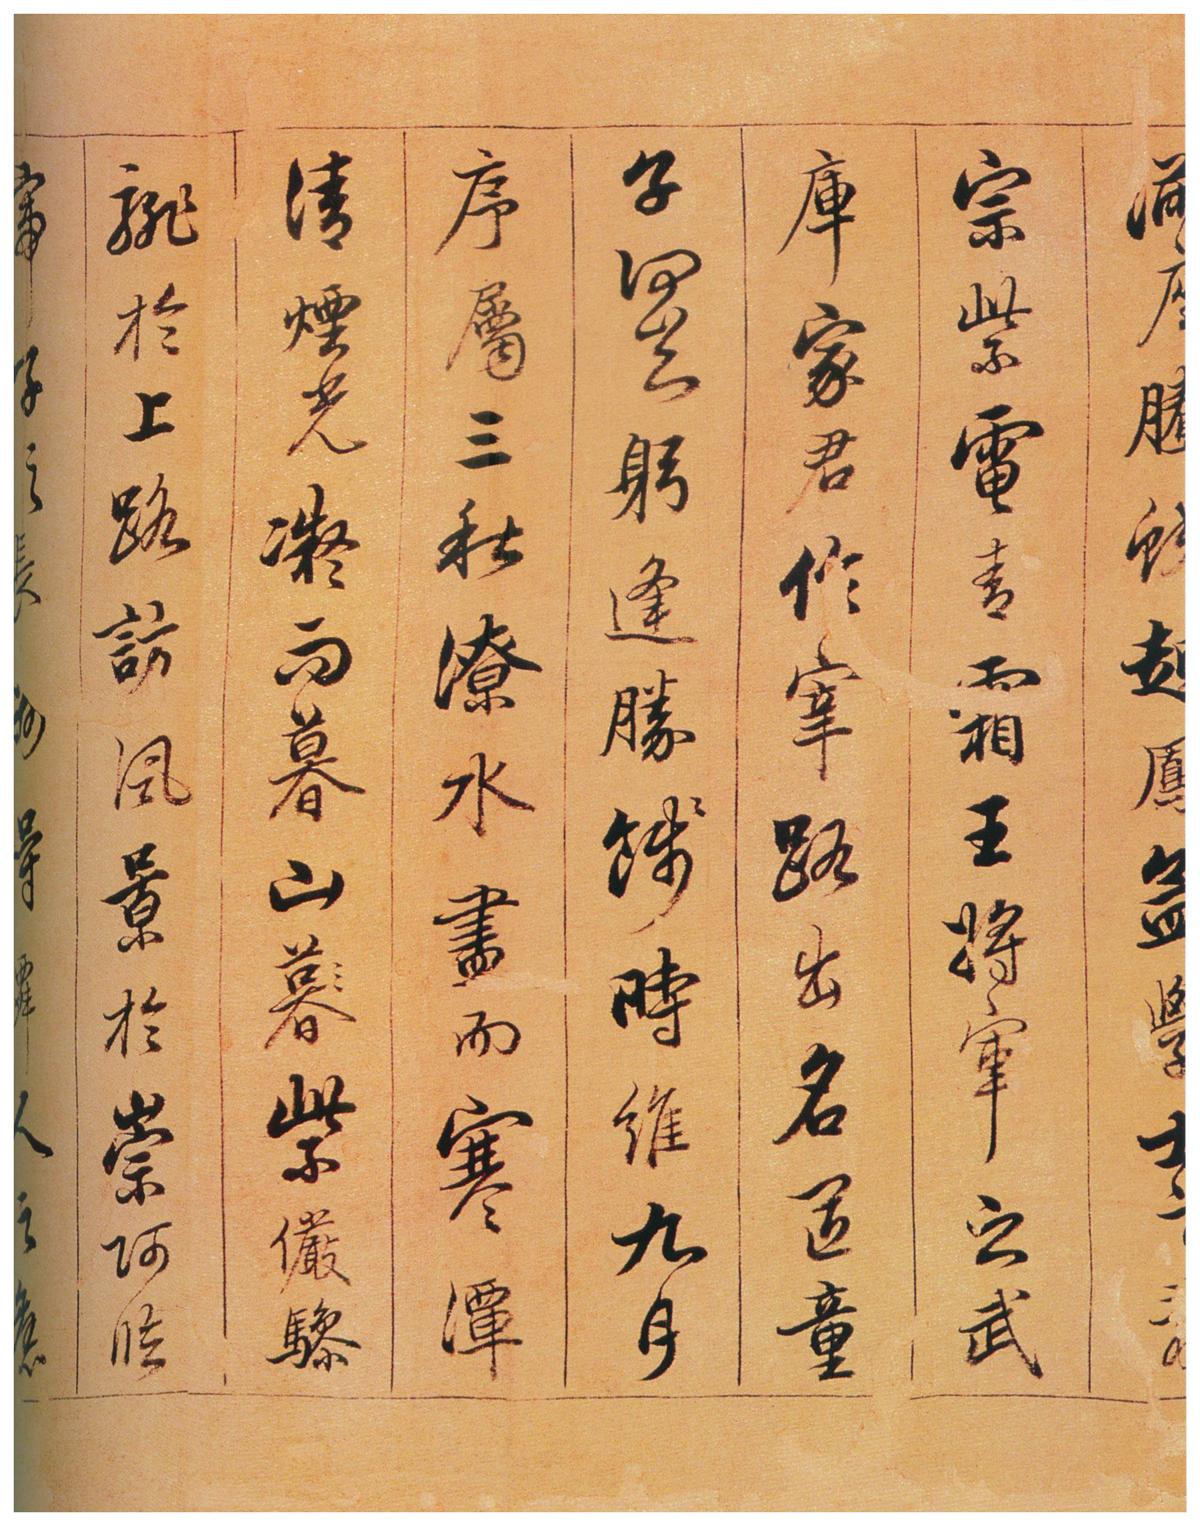 滿座騰蛟起鳳孟學士
宗紫電青霜王將軍之武
庫家君作宰路出名區童
子何知躬逢勝餞時維九月
序屬三秋潦水盡而寒潭
清煙光凝而暮山暮紫儼驂
騑於上路訪風景於崇阿臨
帝子之長洲得人之舊